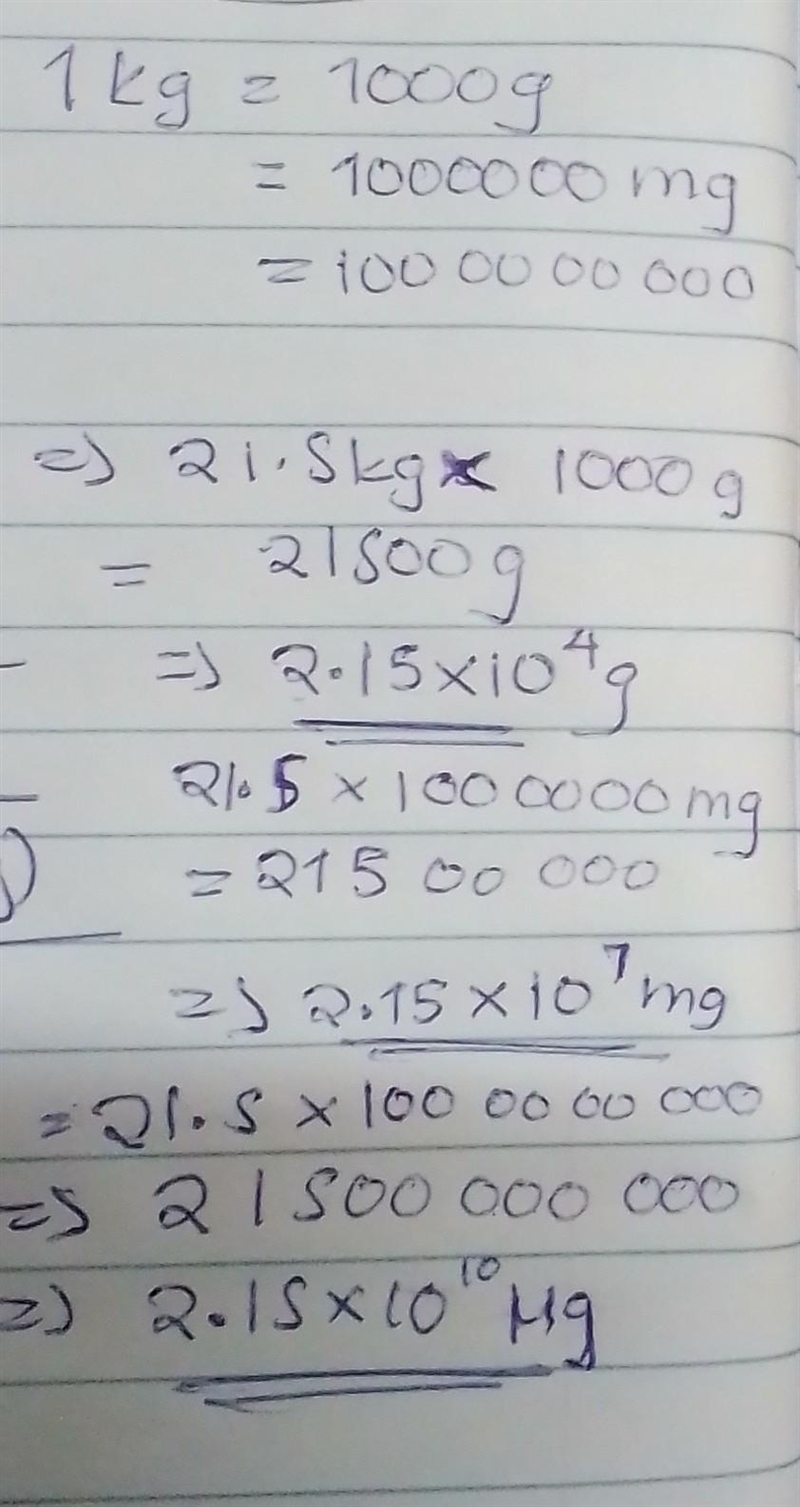 1 kg = 1000g
= 1000000 mg
= 100 00 00 000
=> 21.5kg x 1000 g
= 21500g
=> 2.15×10⁴g
21.5 × 100 0000 mg
= 215 00 000
=> 2.15 × 10⁷ mg
= 21.5 × 100 00 00 000
=> 21500 000 000
=> 2.15×10¹⁰ μg